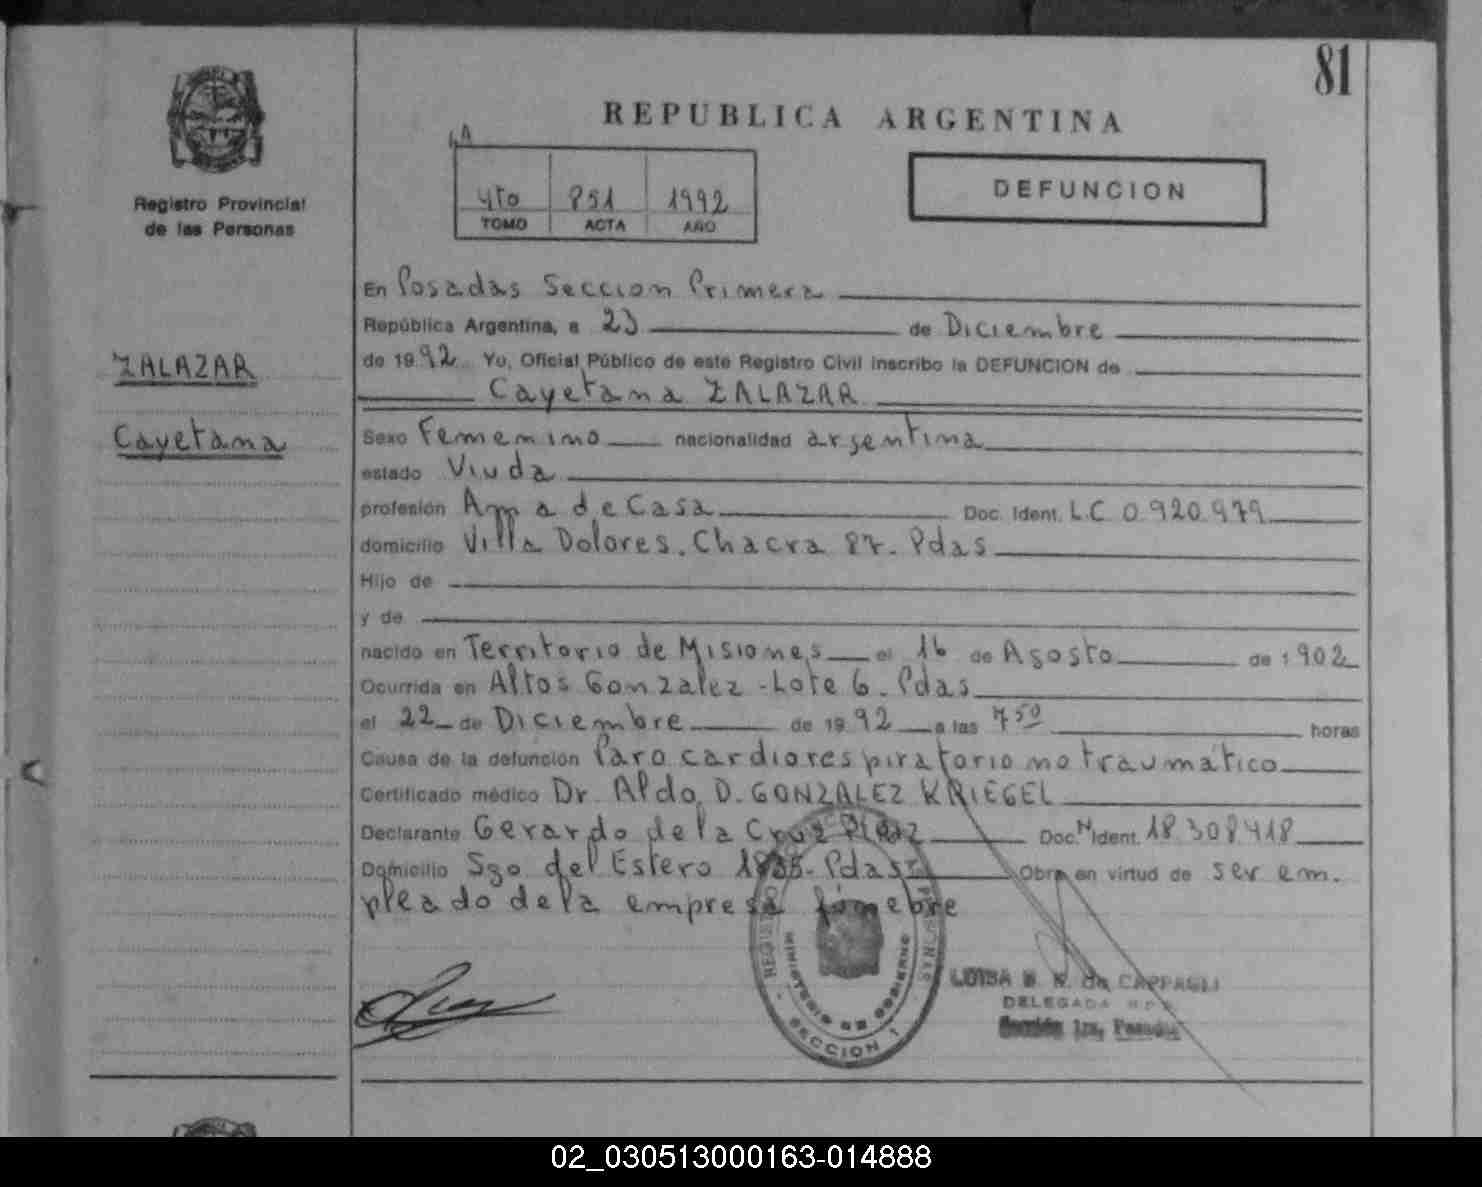 81
REPUBLICA ARGENTINA
DEFUNCION
4to 851 1992
TOMO ACTA AÑO
Registro Provincial
de las Personas
ZALAZAR
Cayetana
En Posadas Seccion Primera
República Argentina, a 23 de Diciembre
de 1992 Yo, Oficial Público de este Registro Civil inscribo la DEFUNCION de
Cayetana ZALAZAR
Sexo Femenino nacionalidad argentina
estado Viuda
profesión Ama de Casa Doc. Ident. L.C 0.920.979
domicilio Villa Dolores. Chacra 87. Pdas
Hijo de
y de
nacido en Territorio de Misiones el 16 de Agosto de 1902
Ocurrida en Altos Gonzalez - Lote 6. Pdas
el 22 de Diciembre de 1992 a las 7 50 horas
Causa de la defunción Paro cardiorespiratorio no traumático
Certificado médico Dr. Aldo D. GONZALEZ KRIEGEL
Declarante Gerardo de la Cruz Doc. N Ident. 18.308.418
Domicilio Sgo. del Estero Pdas Obra en virtud de ser em.
pleado de la empresa fúnebre
REGISTRO PERSONAS
MINISTERIO DE GOBIERNO
SECCION 1
LUISA de CAPPAGLI
DELEGADA
Sección 1ra, Posadas
02_030513000163-014888